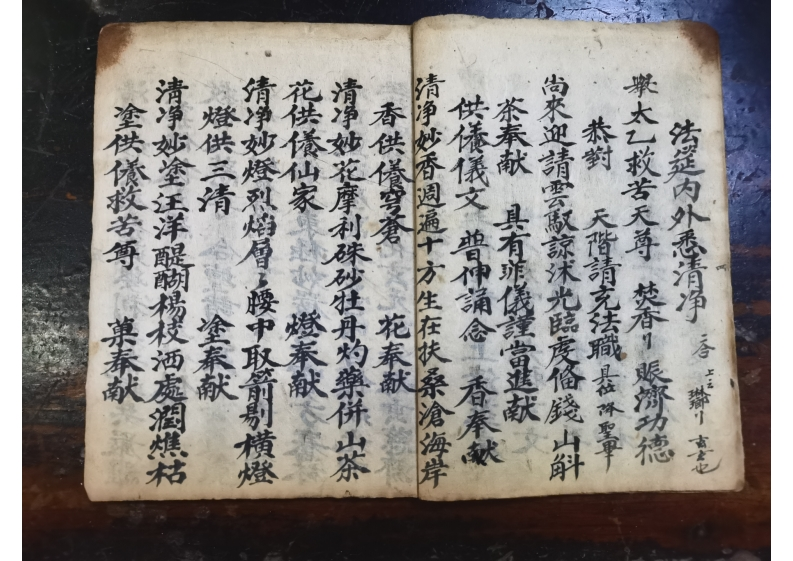 法筵內外悉清净 吝 上三 玄云也
舉太乙救苦天尊 焚香 賬濟功德
恭對 天階請充法職 具位 聖畢
尚來迎請雲馭諒沐光臨虔俻錢山斛
茶奉献 具有菲儀謹當進献
供儀儀文 普伸誦念 香奉献
清净妙香週遍十方生在扶桑滄海岸
香供儀穹蒼 花奉献
清净妙花摩利硃砂牡丹灼藥併山茶
花供儀仙家 燈奉献
清净妙燈烈焰層々腰中取箭剔橫燈
燈供三清 塗奉献
淸净妙塗汪洋醍醐楊枝洒處潤燋枯
塗供儀救苦尊 菓奉献